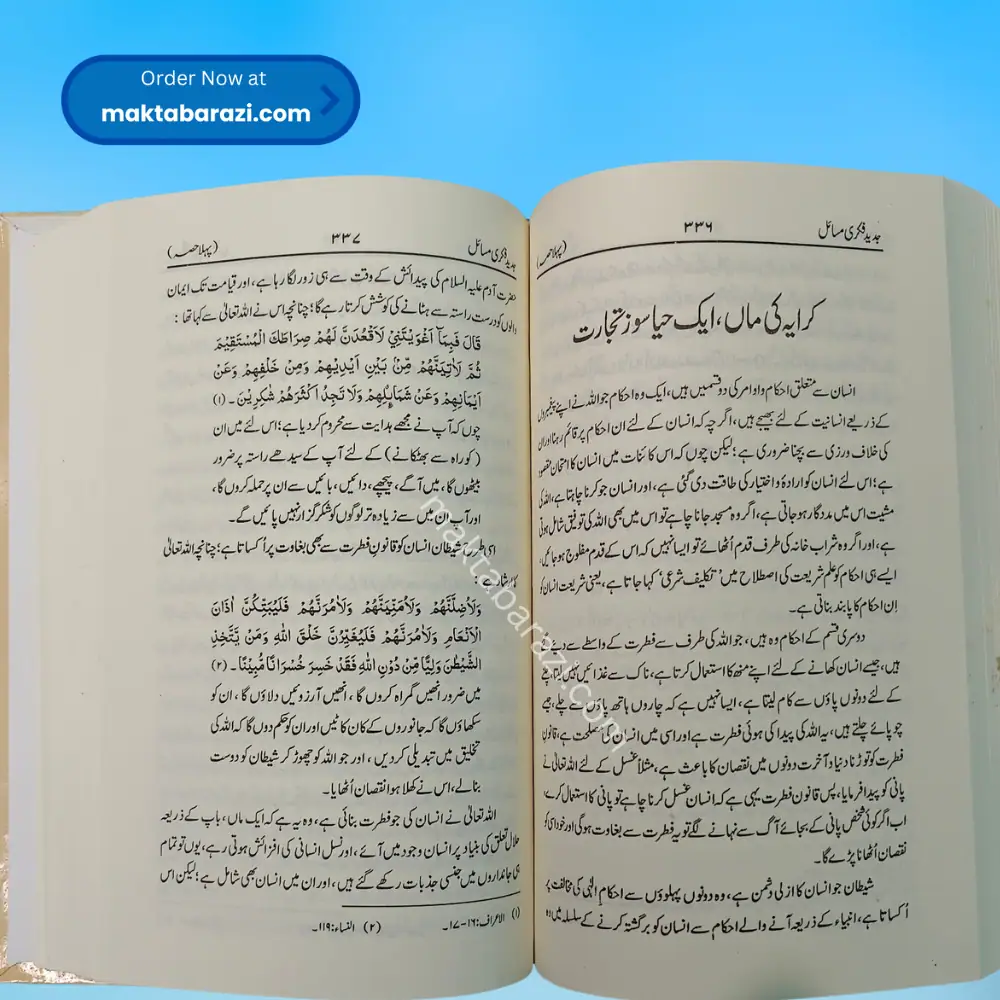 Order Now at
maktabarazi.com
جدید فکری مسائل ۳۳۶ (پہلا حصہ)
کرایہ کی ماں، ایک حیا سوز تجارت
انسان سے متعلق احکام و اوامر کی دو قسمیں ہیں، ایک وہ احکام جو اللہ نے اپنے پیغمبروں
کے ذریعے انسانیت کے لئے بھیجے ہیں، اگرچہ کہ انسان کے لئے ان احکام پر قائم رہنا اور ان
کی خلاف ورزی سے بچنا ضروری ہے؛ لیکن چوں کہ اس کائنات میں انسان کا امتحان مقصود
ہے؛ اس لئے انسان کو ارادہ و اختیار کی طاقت دی گئی ہے، اور انسان جو کرنا چاہتا ہے، اللہ کی
مشیت اس میں مددگار ہو جاتی ہے، اگر وہ مسجد جانا چاہے تو اس میں بھی اللہ کی توفیق شامل ہوتی
ہے، اور اگر وہ شراب خانہ کی طرف قدم اُٹھائے تو ایسا نہیں کہ اس کے قدم مفلوج ہو جائیں،
ایسے ہی احکام کو علم شریعت کی اصطلاح میں ’تکلیف شرعی‘ کہا جاتا ہے، یعنی شریعت انسان کو
اِن احکام کا پابند بناتی ہے۔
دوسری قسم کے احکام وہ ہیں، جو اللہ کی طرف سے فطرت کے واسطے سے دیئے گئے
ہیں، جیسے انسان کھانے کے لئے اپنے منھ کا استعمال کرتا ہے، ناک سے غذائیں نہیں لیتا، چلنے
کے لئے دونوں پاؤں سے کام لیتا ہے، ایسا نہیں ہے کہ چاروں ہاتھ پاؤں سے چلے، جیسے
چوپائے چلتے ہیں، یہ اللہ کی پیدا کی ہوئی فطرت ہے اور اسی میں انسان کی مصلحت ہے، قانونِ
فطرت کو توڑنا دنیا و آخرت دونوں میں نقصان کا باعث ہے، مثلاً غسل کے لئے اللہ تعالیٰ نے
پانی کو پیدا فرمایا، پس قانون فطرت یہی ہے کہ انسان غسل کرنا چاہے تو پانی کا استعمال کرے،
اب اگر کوئی شخص پانی کے بجائے آگ سے نہانے لگے تو یہ فطرت سے بغاوت ہوگی اور خود اسی کو
نقصان اُٹھانا پڑے گا۔
شیطان جو انسان کا ازلی دشمن ہے، وہ دونوں پہلوؤں سے احکام الٰہی کی مخالفت پر
اُکساتا ہے، انبیاء کے ذریعہ آنے والے احکام سے انسان کو برگشتہ کرنے کے سلسلہ میں وہ
جدید فکری مسائل ۳۳۷ (پہلا حصہ)
حضرت آدم علیہ السلام کی پیدائش کے وقت سے ہی زور لگا رہا ہے، اور قیامت تک ایمان
والوں کو درست راستہ سے ہٹانے کی کوشش کرتا رہے گا؛ چنانچہ اس نے اللہ تعالیٰ سے کہا تھا :
قَالَ فَبِمَآ اَغْوَيْتَنِيْ لَاَقْعُدَنَّ لَهُمْ صِرَاطَكَ الْمُسْتَقِيْمَ
ثُمَّ لَاٰتِيَنَّهُمْ مِّنْۢ بَيْنِ اَيْدِيْهِمْ وَمِنْ خَلْفِهِمْ وَعَنْ
اَيْمَانِهِمْ وَعَنْ شَمَآئِلِهِمْ وَلَا تَجِدُ اَكْثَرَهُمْ شٰكِرِيْنَ ۔ (۱)
چوں کہ آپ نے مجھے ہدایت سے محروم کر دیا ہے؛ اس لئے میں ان
(کو راہ سے بھٹکانے) کے لئے آپ کے سیدھے راستہ پر ضرور
بیٹھوں گا، میں آگے، پیچھے، دائیں، بائیں سے ان پر حملہ کروں گا،
اور آپ ان میں سے زیادہ تر لوگوں کو شکر گزار نہیں پائیں گے۔
اسی طرح شیطان انسان کو قانونِ فطرت سے بھی بغاوت پر اُکساتا ہے؛ چنانچہ اللہ تعالیٰ
کا ارشاد ہے :
وَلَاُضِلَّنَّهُمْ وَلَاُمَنِّيَنَّهُمْ وَلَاٰمُرَنَّهُمْ فَلَيُبَتِّكُنَّ اٰذَانَ
الْاَنْعَامِ وَلَاٰمُرَنَّهُمْ فَلَيُغَيِّرُنَّ خَلْقَ اللهِ وَمَنْ يَّتَّخِذِ
الشَّيْطٰنَ وَلِيًّا مِّنْ دُوْنِ اللهِ فَقَدْ خَسِرَ خُسْرَانًا مُّبِيْنًا ۔ (۲)
میں ضرور انھیں گمراہ کروں گا، انھیں آرزوئیں دلاؤں گا، ان کو
سکھاؤں گا کہ جانوروں کے کان کاٹیں اور ان کو حکم دوں گا کہ اللہ کی
تخلیق میں تبدیلی کر دیں، اور جو اللہ کو چھوڑ کر شیطان کو دوست
بنا لے، اس نے کھلا ہوا نقصان اُٹھایا۔
اللہ تعالیٰ نے انسان کی جو فطرت بنائی ہے، وہ یہ ہے کہ ایک ماں، باپ کے ذریعہ
حلال تعلق کی بنیاد پر انسان وجود میں آئے، اور نسل انسانی کی افزائش ہوتی رہے، یوں تو تمام
ہی جانداروں میں جنسی جذبات رکھے گئے ہیں، اور ان میں انسان بھی شامل ہے؛ لیکن اس
(۱) الاعراف:۱۶-۱۷۔ (۲) النساء:۱۱۹۔
maktabarazi.com